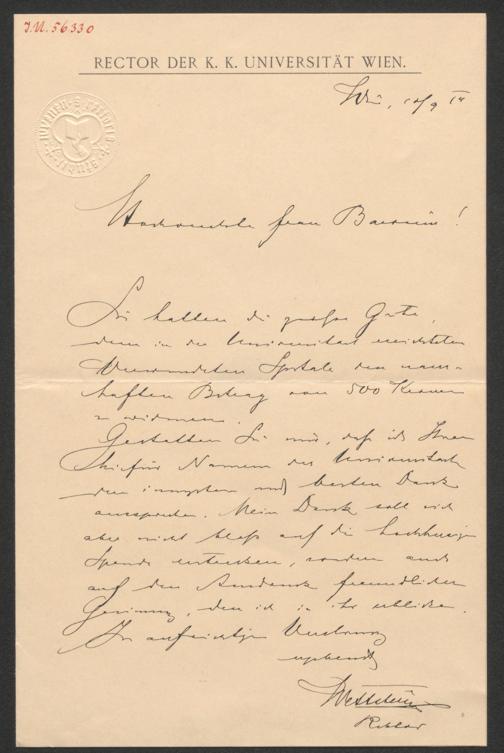 I.N. 56330
RECTOR DER K. K. UNIVERSITÄT WIEN.
Wien, 10/9 14
Hochverehrte Frau Baronin!
Sie hatten die große Güte,
dem in der Universität errichteten
Verwundeten Spitale den nam-
haften Betrag von 500 Kronen
zu widmen.
Gestatten Sie mir, daß ich Ihnen
hiefür Namens der Universität
den innigsten und besten Dank
ausspreche. Mein Dank soll sich
aber nicht bloß auf die hochherzige
Spende erstrecken, sondern auch
auf den Ausdruck freundlicher
Gesinnung, den ich in ihr erblicke.
In aufrichtiger Verehrung
ergebenst
Wettstein
Rektor